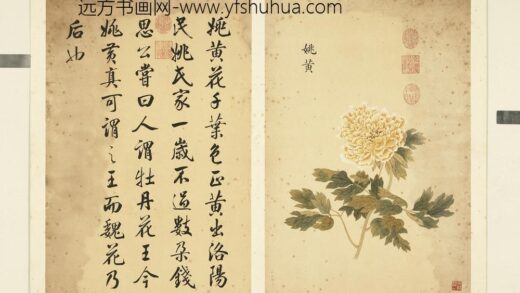 远方书画网-www.yfshuhua.com
姚黄花千葉色正黄出洛陽
民姚氏家一歳不過数朵錢
思公嘗曰人謂牡丹花王今
姚黄真可謂之王而魏花乃
后也
姚黄